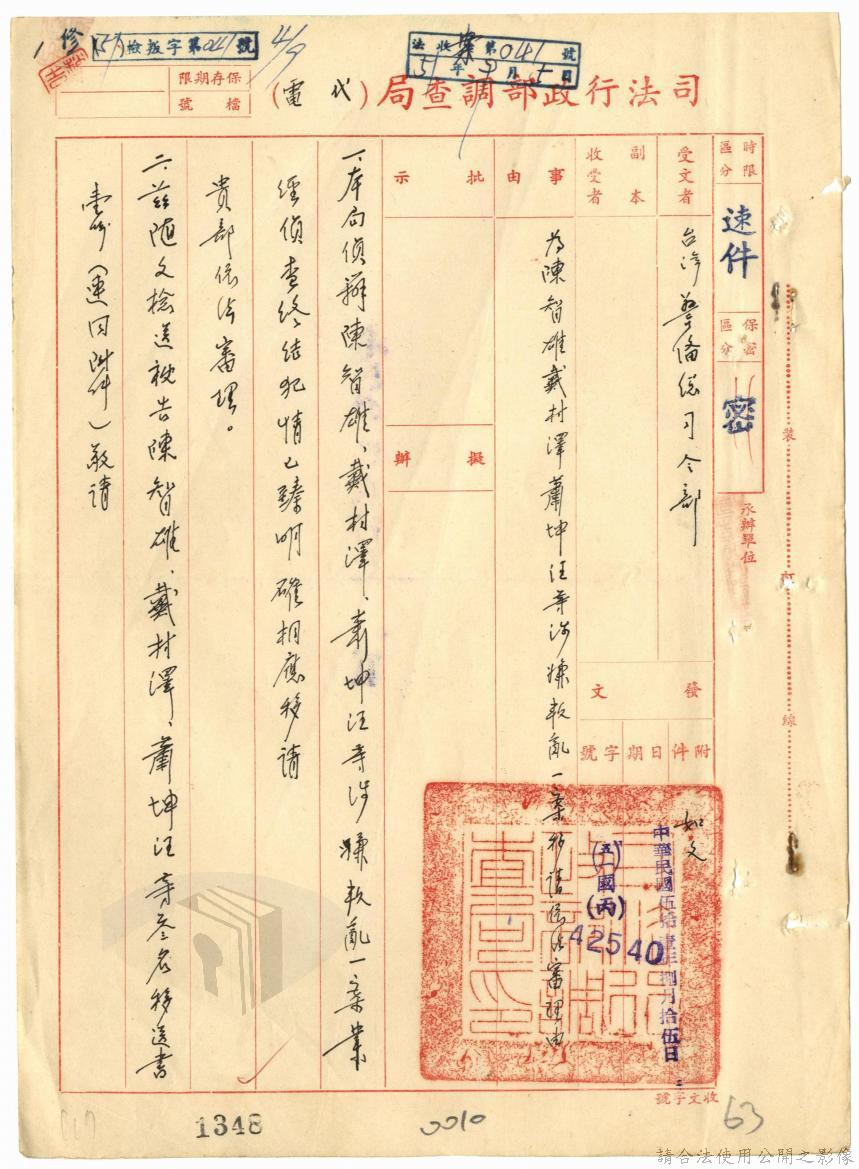 (51)檢叛字第041號
法收案第041號
51年9月5日
4/9
保存期限
檔號
司法行政部調查局(代電)
時限區分
速件
保密區分
密
承辦單位
受文者
台灣警備總司令部
副本收受者
發文
附件
如文
日期
中華民國伍拾壹年捌月拾伍日
字號
(五一)國(丙)
42540
事由
為陳智雄戴村澤蕭坤汪等涉嫌叛亂一案移請依法審理由
批示
擬辦
一、本局偵辦陳智雄、戴村澤、蕭坤汪等涉嫌叛亂一案業
經偵查終結犯情已臻明確相應移請
貴部依法審理。
二、茲隨文檢送被告陳智雄、戴村澤、蕭坤汪等叁名移送書
壹份(連同附件)敬請
裝
訂
線
收文字號
1348
0010
63
請合法使用公開之影像